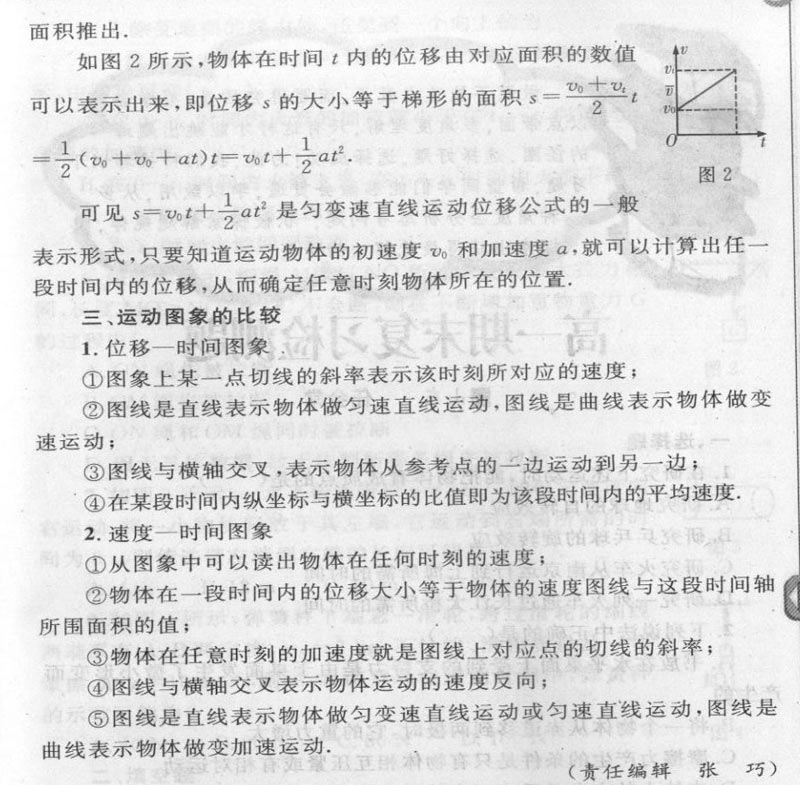 面积推出.
如图 2 所示,物体在时间 t 内的位移由对应面积的数值
可以表示出来,即位移 s 的大小等于梯形的面积 s=\frac{v₀+vₜ}{2}t
=\frac{1}{2}(v₀+v₀+at)t=v₀t+\frac{1}{2}at².
v
vₜ
v̅
v₀
O
t
图 2
可见 s=v₀t+\frac{1}{2}at² 是匀变速直线运动位移公式的一般
表示形式,只要知道运动物体的初速度 v₀ 和加速度 a,就可以计算出任一
段时间内的位移,从而确定任意时刻物体所在的位置.
三、运动图象的比较
1.位移—时间图象
①图象上某一点切线的斜率表示该时刻所对应的速度;
②图线是直线表示物体做匀速直线运动,图线是曲线表示物体做变
速运动;
③图线与横轴交叉,表示物体从参考点的一边运动到另一边;
④在某段时间内纵坐标与横坐标的比值即为该段时间内的平均速度.
2.速度—时间图象
①从图象中可以读出物体在任何时刻的速度;
②物体在一段时间内的位移大小等于物体的速度图线与这段时间轴
所围面积的值;
③物体在任意时刻的加速度就是图线上对应点的切线的斜率;
④图线与横轴交叉表示物体运动的速度反向;
⑤图线是直线表示物体做匀变速直线运动或匀速直线运动,图线是
曲线表示物体做变加速运动.
(责任编辑 张 巧)